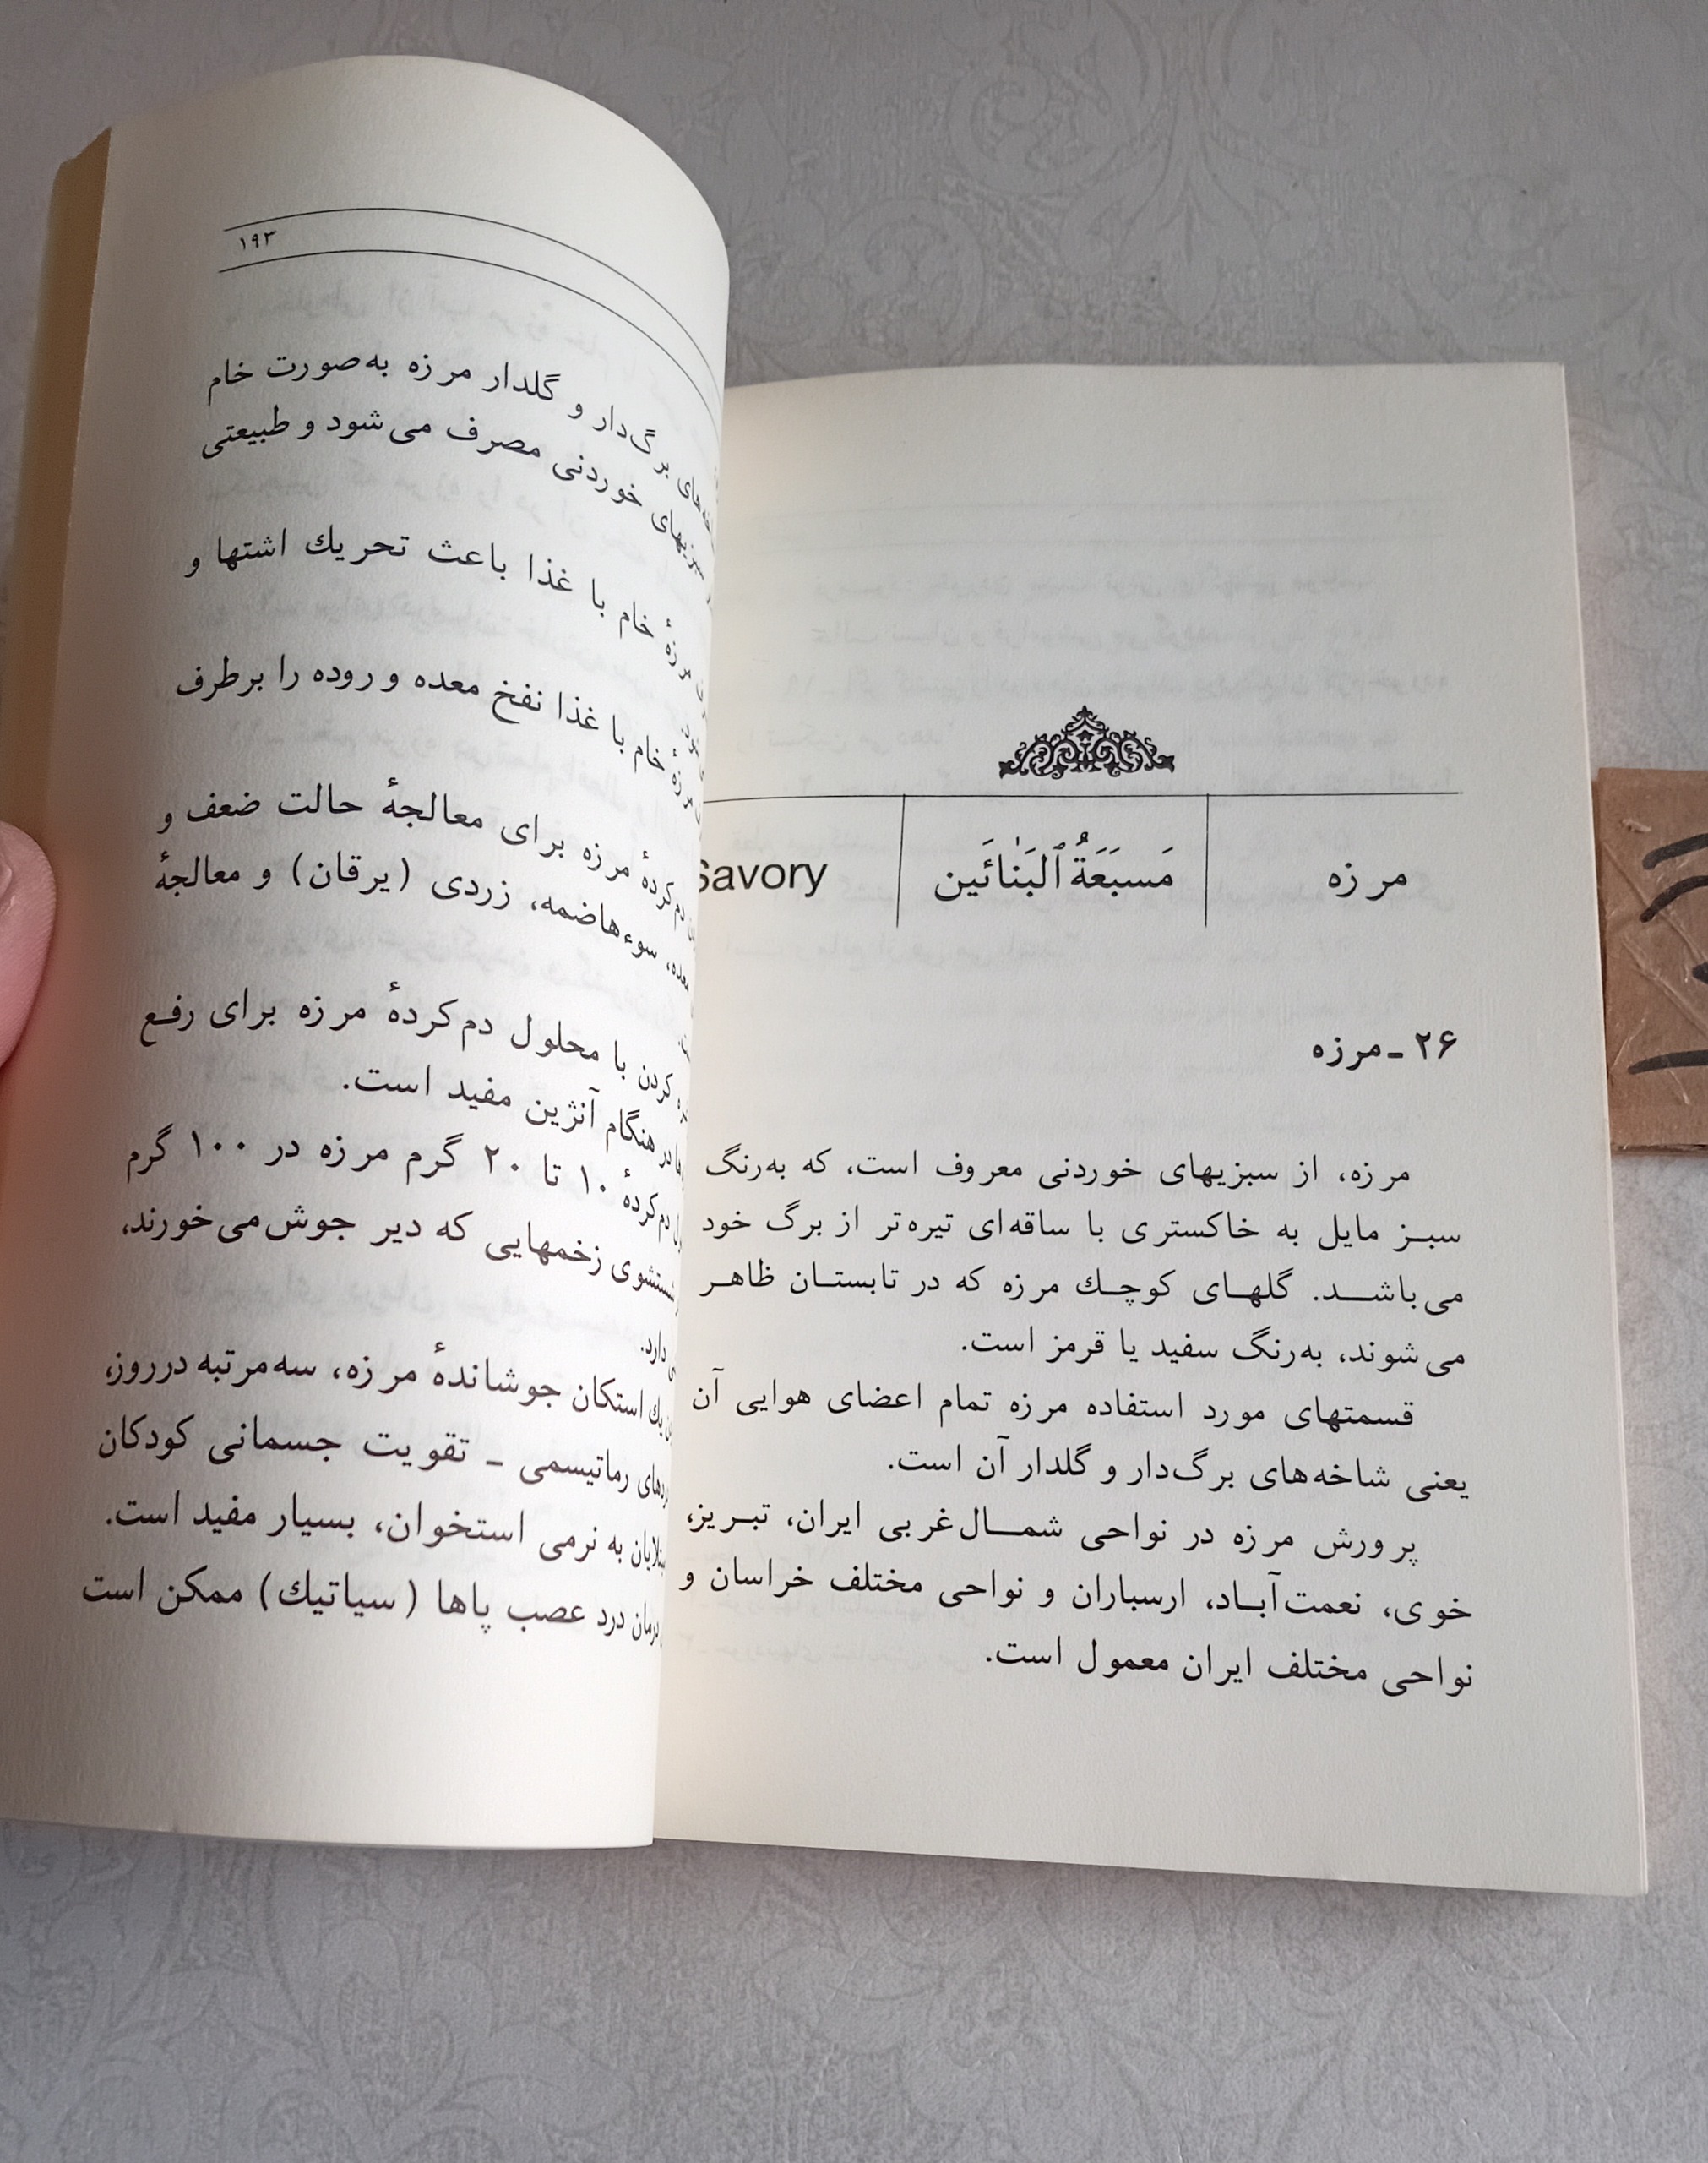 مرزه
مَسبَعَةُ ٱلبَنٰائَین
Savory
۲۶ ـ مرزه
مرزه، از سبزیهای خوردنی معروف است، که به‌رنگ
سبـز مایل به خاکستری با ساقه‌ای تیره‌تر از برگ خود
می‌باشـد. گلهـای کوچـك مرزه که در تابستـان ظاهـر
می‌شوند، به‌رنگ سفید یا قرمز است.
قسمتهای مورد استفاده مرزه تمام اعضای هوایی آن
یعنی شاخه‌های برگ‌دار و گلدار آن است.
پرورش مرزه در نواحی شمـال‌غربی ایران، تبـریز،
خوی، نعمت‌آبـاد، ارسباران و نواحی مختلف خراسان و
نواحی مختلف ایران معمول است.
۱۹۳
برگ‌دار و گلدار مرزه به‌صورت خام
خوردنی مصرف می‌شود و طبیعتی
مرزهٔ خام با غذا باعث تحریك اشتها و
مرزهٔ خام با غذا نفخ معده و روده را برطرف
دم‌کردهٔ مرزه برای معالجهٔ حالت ضعف و
سوءهاضمه، زردی (یرقان) و معالجهٔ
کردن با محلول دم‌کردهٔ مرزه برای رفـع
در هنگام آنژین مفید است.
دم‌کردهٔ ۱۰ تا ۲۰ گرم مرزه در ۱۰۰ گرم
شستشوی زخمهایی که دیر جوش‌می‌خورند،
دارد.
یك استکان جوشاندهٔ مرزه، سه‌مرتبه درروز،
رماتیسمی ـ تقویت جسمانی کودکان
به نرمی استخوان، بسیار مفید است.
درمان درد عصب پاها (سیاتیك) ممکن است